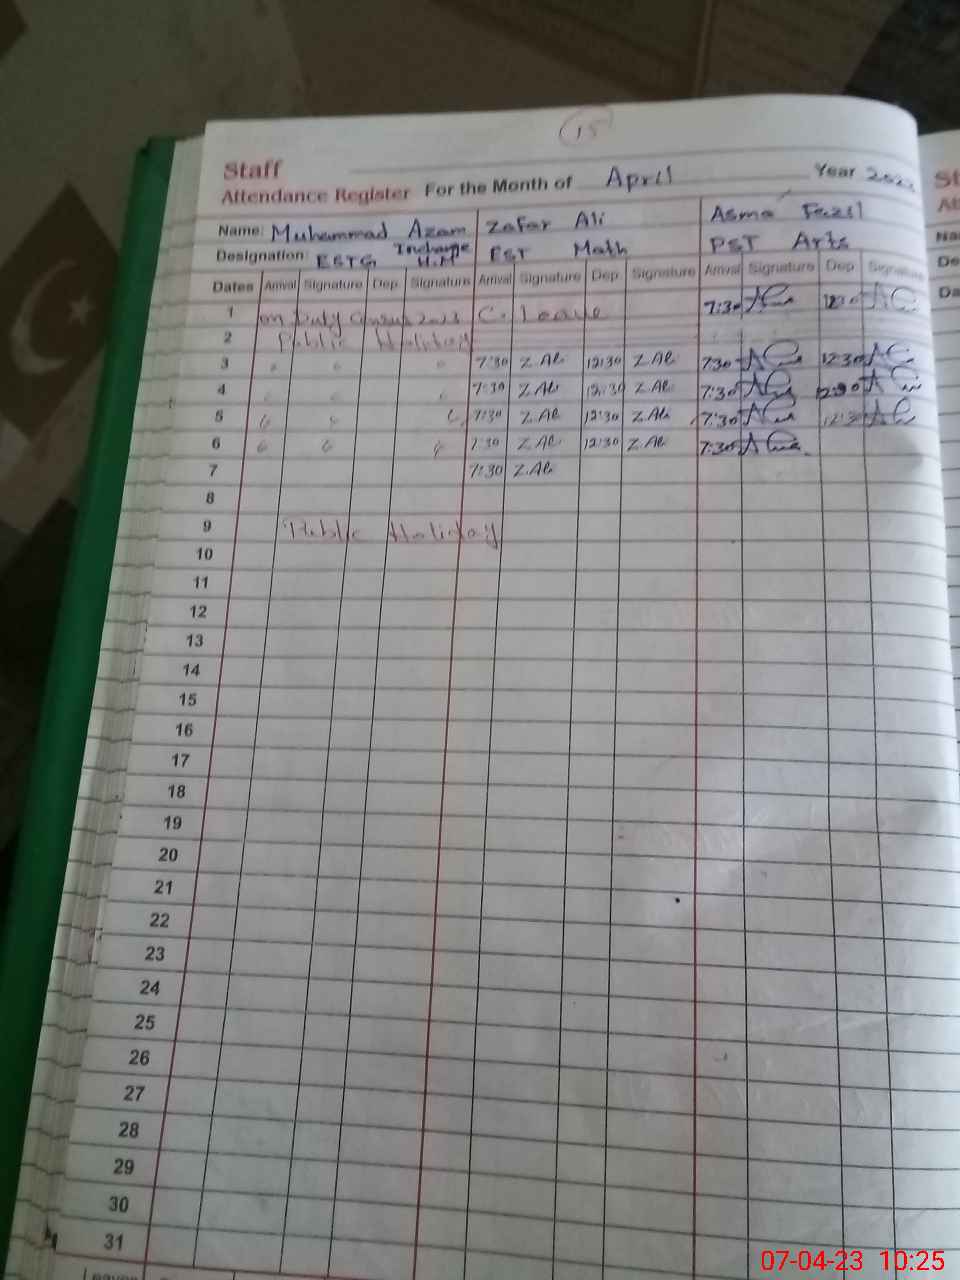 15
Staff
Attendance Register For the Month of April Year
Name: Muhammad Azam Zafar Ali Asma Fazil
Designation: ESTG Incharge H.M EST Math PST Arts
Dates Arrival Signature Dep. Signature Arrival Signature Dep Signature Arrival Signature Dep. Signature
1 on Duty 2023 C. Leave 7:30 1230
2 Public Holiday
3 " " " 7:30 Z.Ali 12:30 Z Ali 730 12:30
4 7:30 Z.Ali 12:30 Z.Ali 7:30 12:30
5 " " " 7:30 Z.Ali 12:30 Z.Ali 7:30 12:3
6 " " " 7:30 Z.Ali 12:30 Z.Ali 7:30
7 7:30 Z.Ali
8
9 Public Holiday
10
11
12
13
14
15
16
17
18
19
20
21
22
23
24
25
26
27
28
29
30
31
07-04-23 10:25